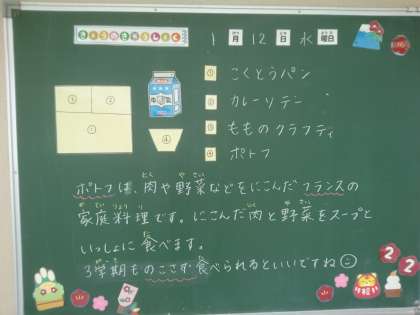 きょうのきゅうしょく
1月12日 水曜日
① こくとうパン
② カレーソテー
③ もものクラフティ
④ ポトフ
③
②
①
④
牛乳
ポトフは、肉や野菜などをにこんだフランスの
家庭料理です。にこんだ肉と野菜をスープと
いっしょに食べます。
3学期ものこさず食べられるといいですね
2 2